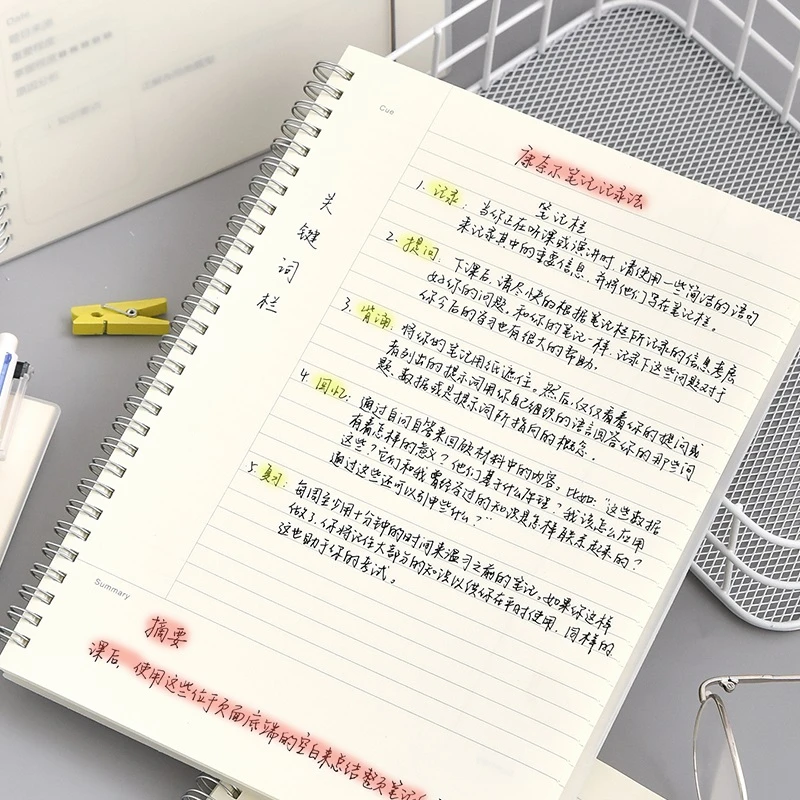 Date
Cue
康奈尔笔记记录法
关
键
词
栏
笔记栏
1. 记录: 当你正在听课或演讲时,请使用一些简洁的语句
来记录其中的重要信息,并将他们写在笔记栏。
2. 提问: 下课后,请尽快的根据笔记栏所记录的信息考虑
好你的问题。和你的笔记一样,记录下这些问题对于
你今后的复习也有很大的帮助。
3. 背诵: 将你的笔记用纸遮住。然后,仅仅看看你的提问或
者列出的提示词用你自己组织的语言回答你的那些问
题、数据或是提示词所指向的概念。
4. 回忆: 通过自问自答来回顾材料中的内容。比如:“这些数据
有着怎样的意义?他们基于什么原理?我该怎么应用
这些?它们和我曾经学过的知识是怎样联系起来的?
通过这些还可以引申些什么?”
5. 复习: 每周至少用十分钟的时间来温习之前的笔记。如果你这样
做了,你将记住大部分的知识以供你在平时使用,同样的
这也助于你的考试。
Summary
摘要
课后,使用这些位于页面底端的空白来总结整页笔记